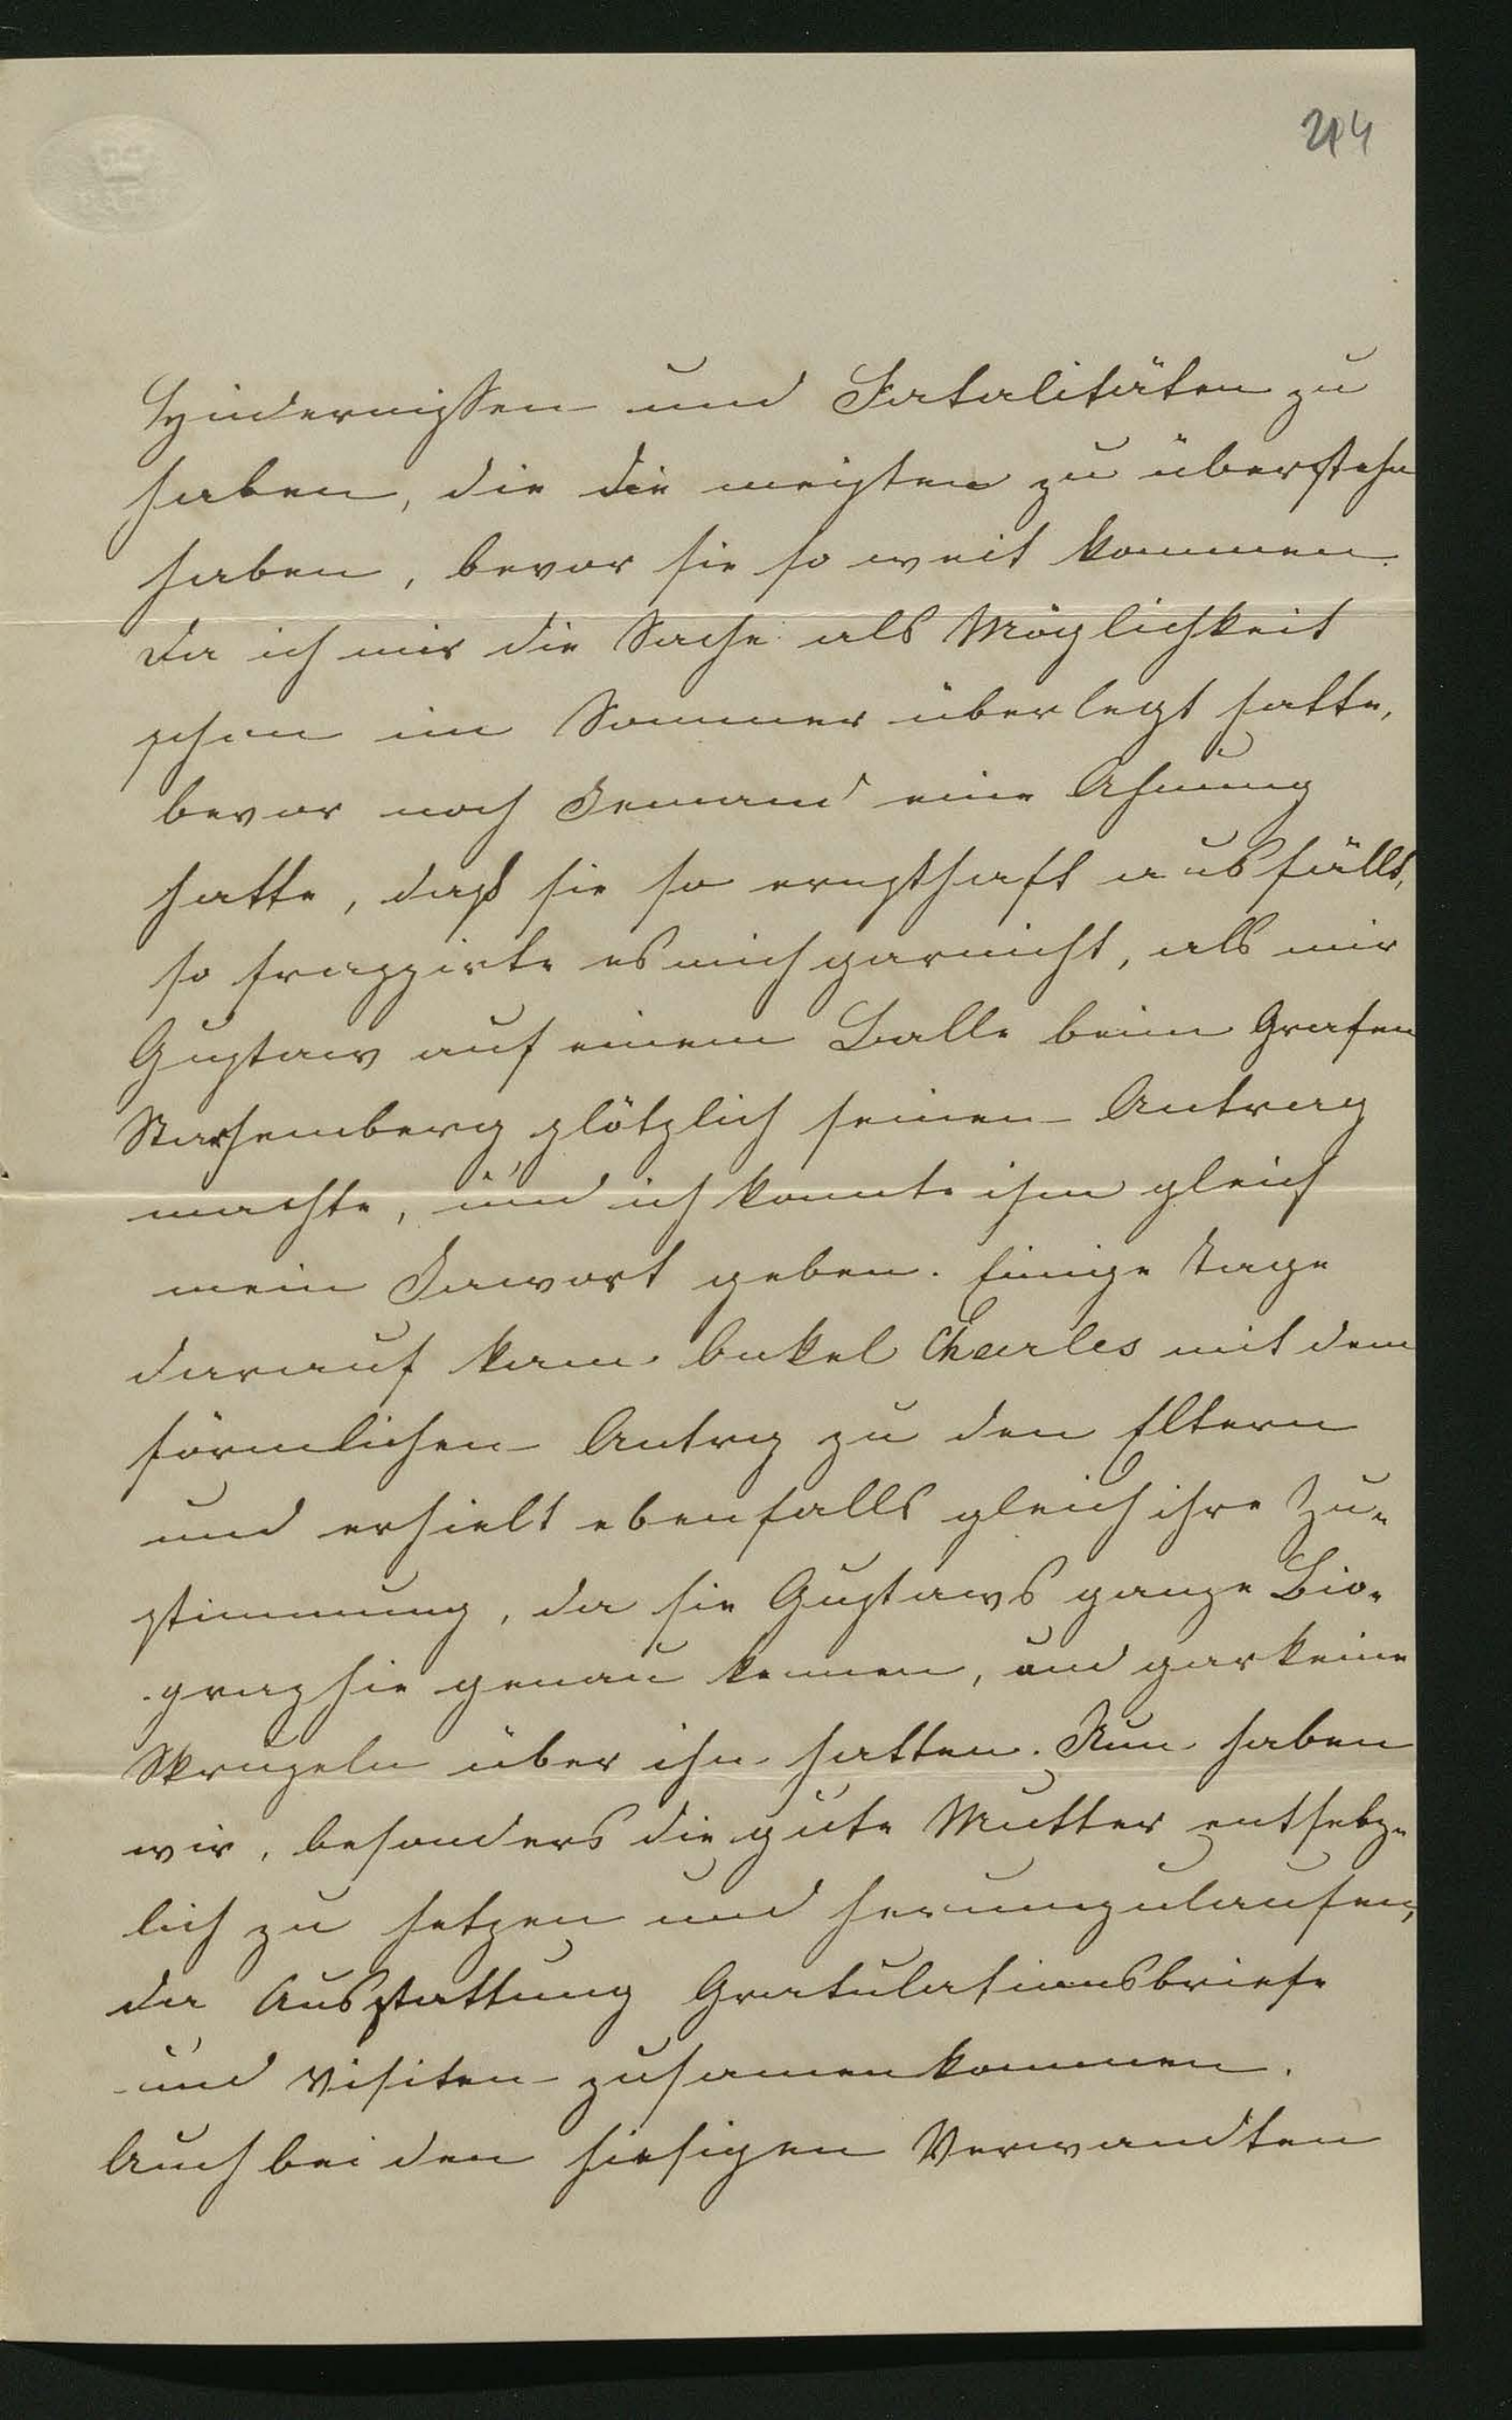 214
Hindernissen und Fatalitäten zu
haben, die die meisten zu überstehn
haben, bevor sie so weit kommen.
Da ich mir die Sache als Möglichkeit
schon im Sommer überlegt hatte,
bevor noch Jemand eine Ahnung
hatte, daß sie so ernsthaft ausfällt,
so frappirte es mich garnicht, als mir
Gustaw auf einem Balle beim Grafen
Starhemberg plötzlich seinen Antrag
machte, und ich konnte ihm gleich
mein Jawort geben. Einige Tage
darauf kam Onkel Charles mit dem
förmlichen Antrg zu den Eltern
und erhielt ebenfalls gleich ihre Zu-
stimmung, da sie Gustaws ganze Bio-
graphie genau kennen, und gar keine
Skrupeln über ihn hatten. Nun haben
wir, besonders die gute Mutter entsetz-
lich zu hetzen und herumzulaufen,
da Ausstattung Gratulationsbriefe
und Visiten zusamenkommen.
Auch bei den hiesigen Verwandten